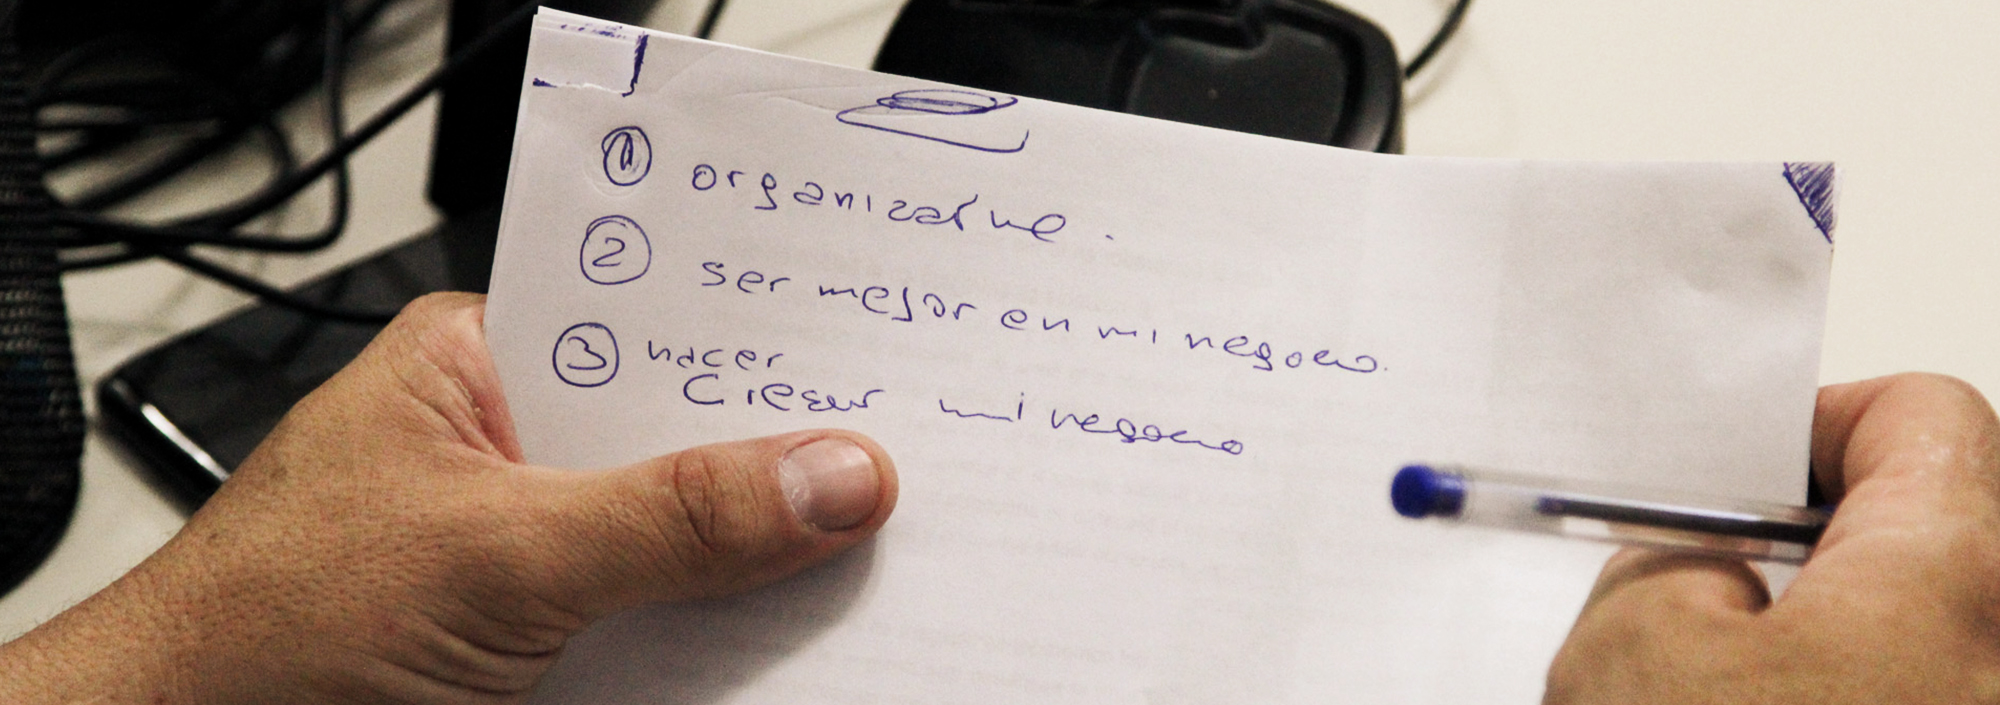 ① organizarme.
② ser mejor en mi negocio.
③ hacer
Crecer mi negocio